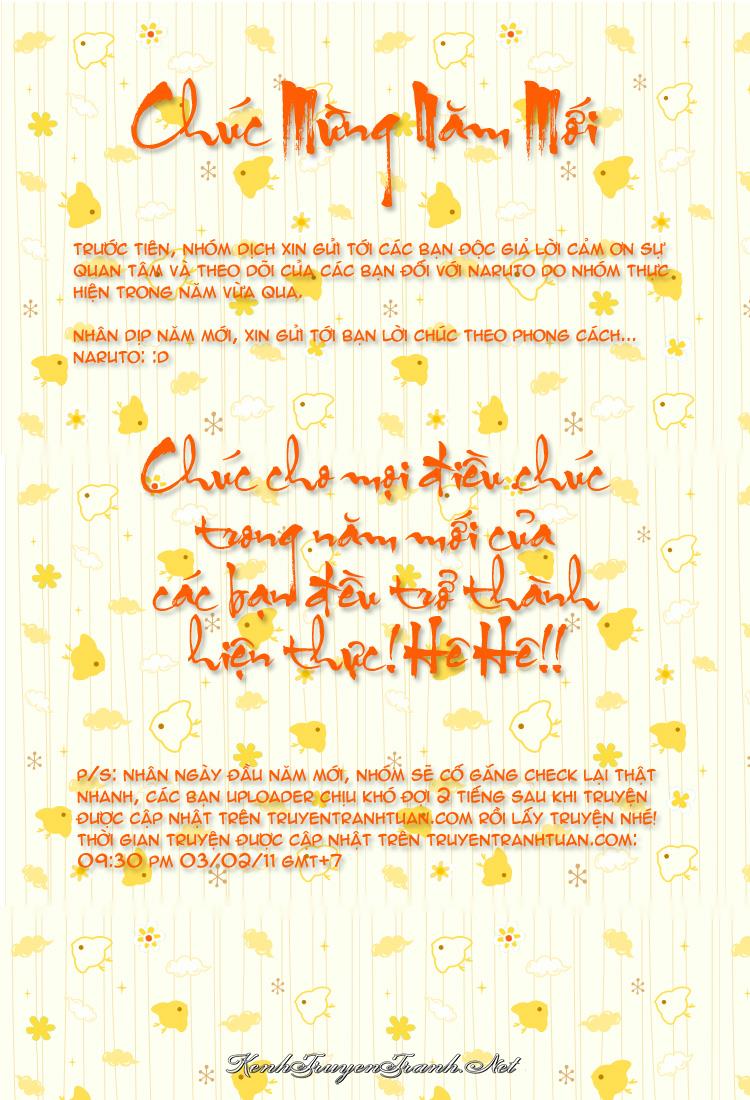 Chúc Mừng Năm Mới
TRƯỚC TIÊN, NHÓM DỊCH XIN GỬI TỚI CÁC BẠN ĐỘC GIẢ LỜI CẢM ƠN SỰ
QUAN TÂM VÀ THEO DÕI CỦA CÁC BẠN ĐỐI VỚI NARUTO DO NHÓM THỰC
HIỆN TRONG NĂM VỪA QUA.
NHÂN DỊP NĂM MỚI, XIN GỬI TỚI BẠN LỜI CHÚC THEO PHONG CÁCH...
NARUTO: :D
Chúc cho mọi điều chúc
trong năm mới của
các bạn đều trở thành
hiện thực! Hê Hê!!
P/S: NHÂN NGÀY ĐẦU NĂM MỚI, NHÓM SẼ CỐ GẮNG CHECK LẠI THẬT
NHANH, CÁC BẠN UPLOADER CHỊU KHÓ ĐỢI 2 TIẾNG SAU KHI TRUYỆN
ĐƯỢC CẬP NHẬT TRÊN TRUYENTRANHTUAN.COM RỒI LẤY TRUYỆN NHÉ!
THỜI GIAN TRUYỆN ĐƯỢC CẬP NHẬT TRÊN TRUYENTRANHTUAN.COM:
09:30 PM 03/02/11 GMT+7
KenhTruyenTranh.Net